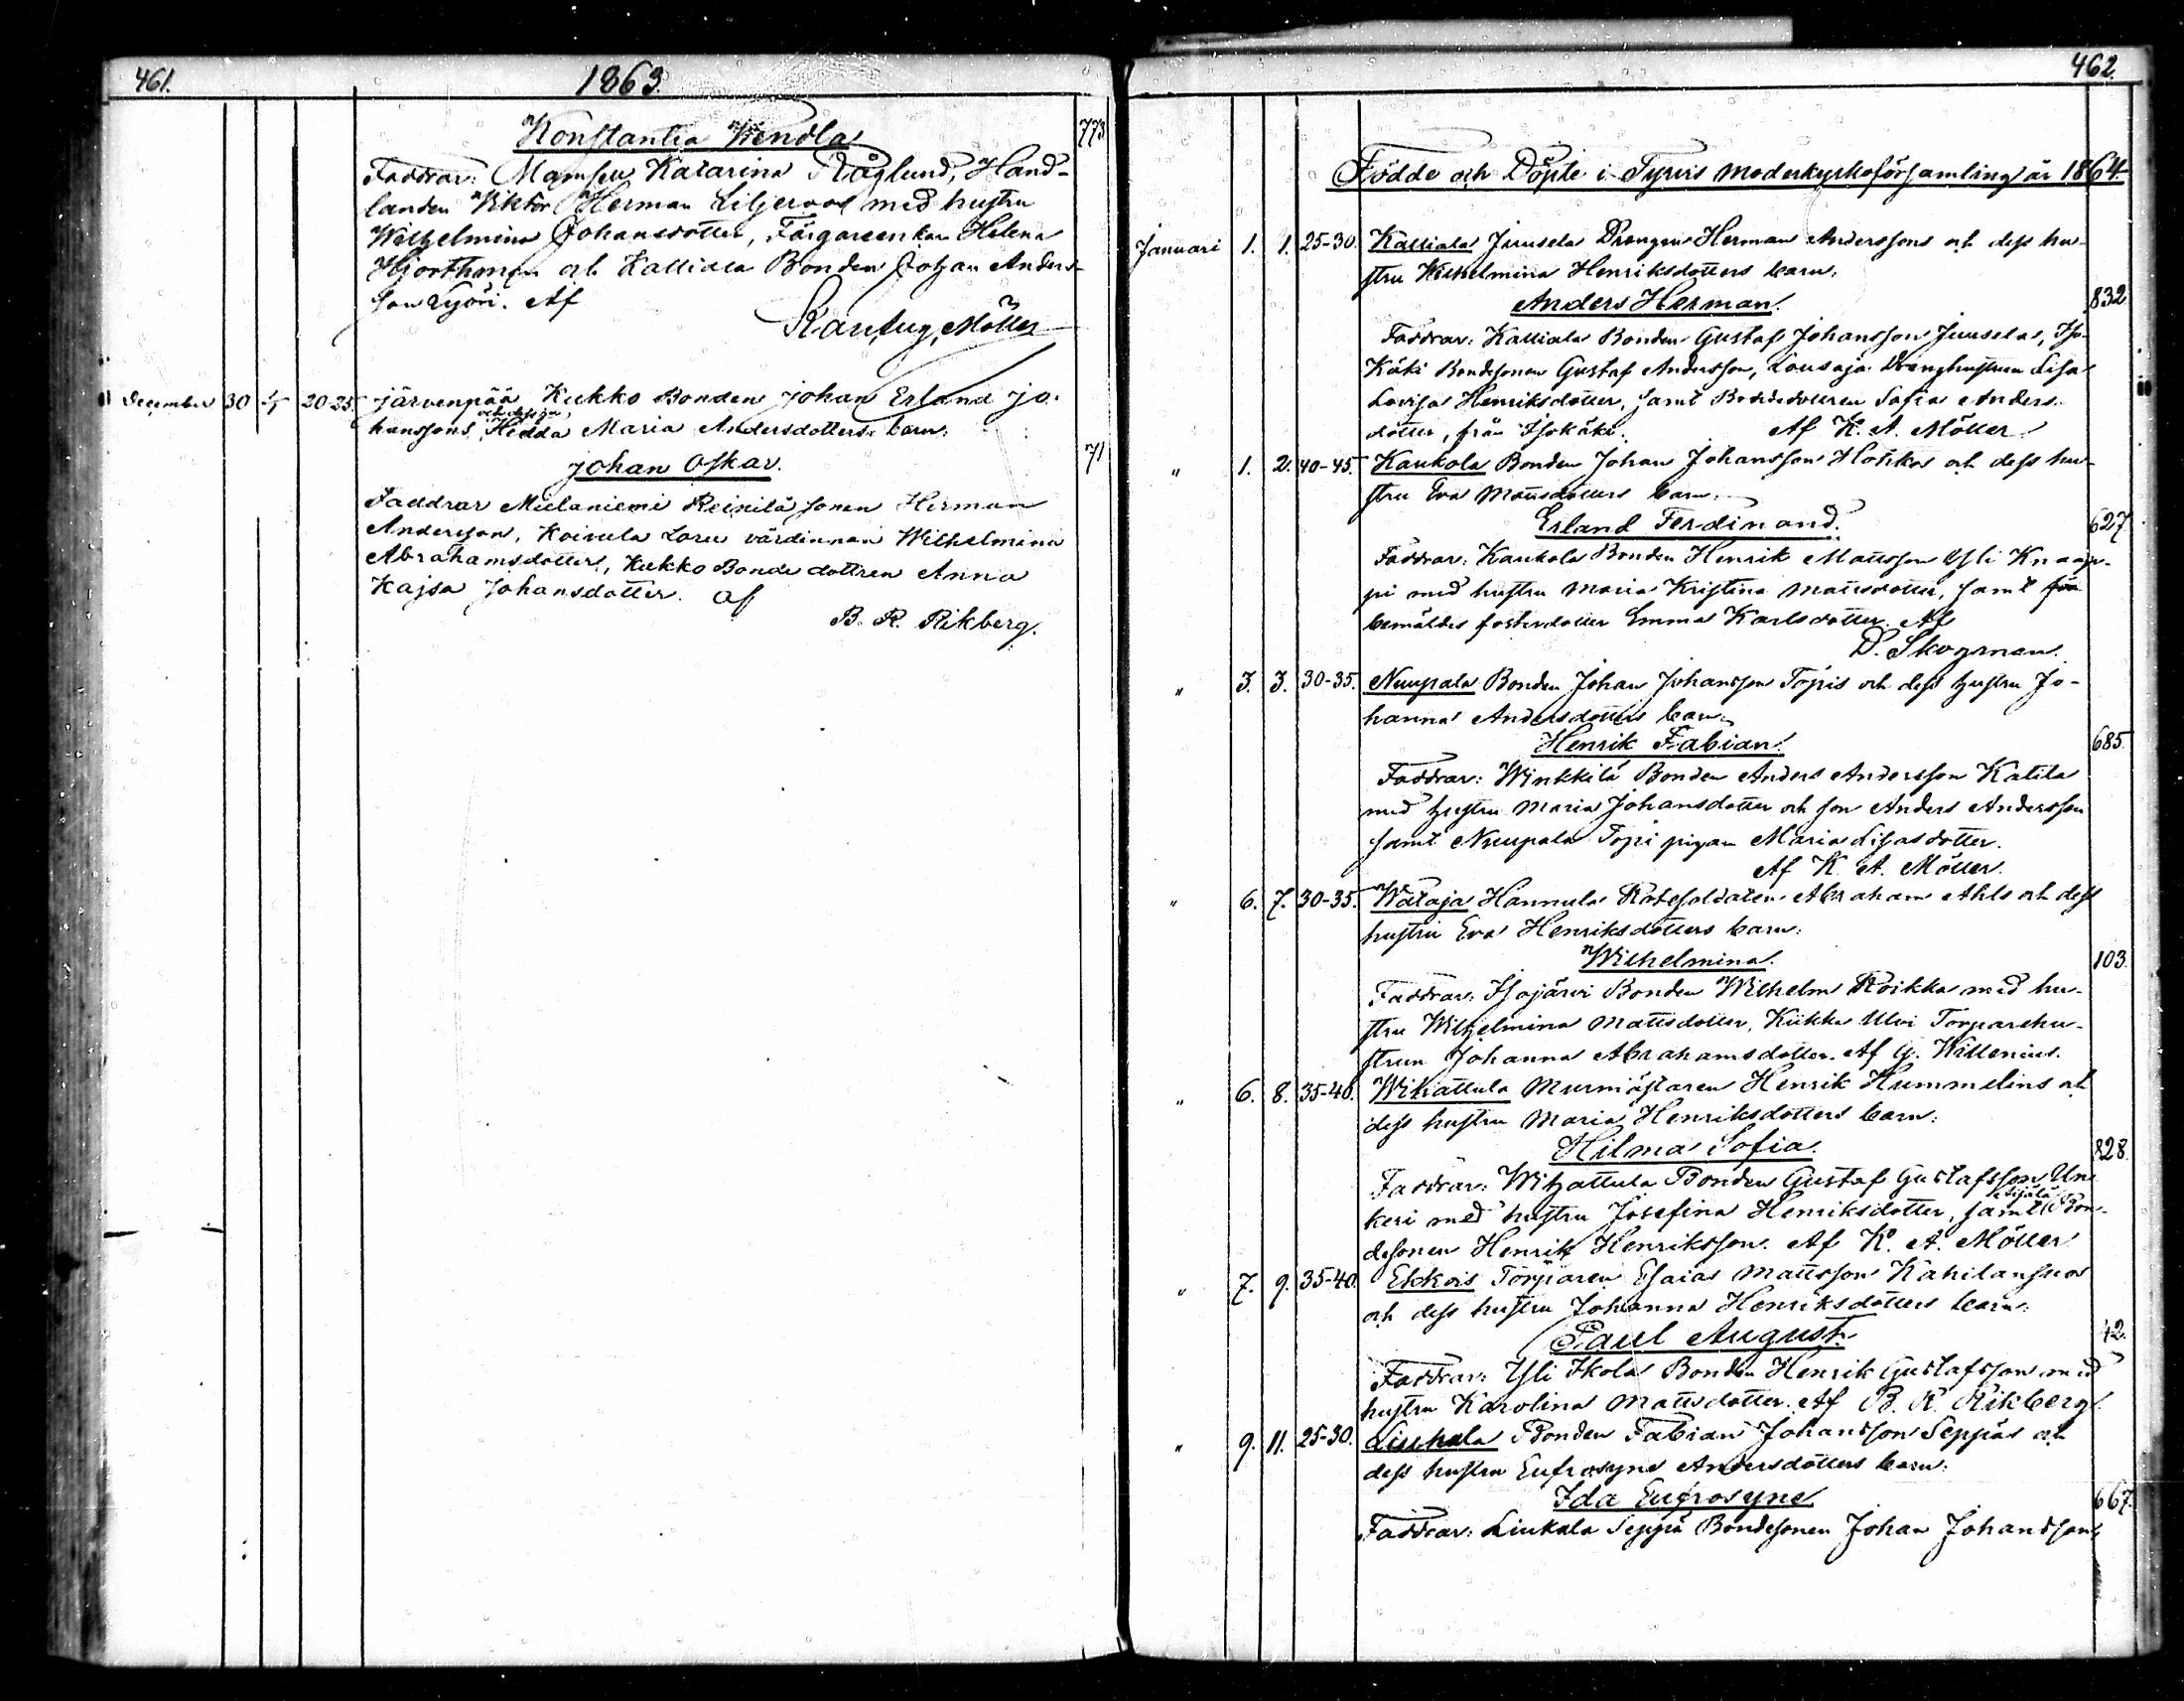 461. 1863.
Konstantia Wendla 773
Faddrar: Mamsen Katarina Råglund, Hand-
landen Viktor Herman Liljeroos med hustru
Wilhelmina Johansdotter, Färgareenkan Helena
Hjorthman och Kalliala Bonden Johan Anders-
son Työri. Af
Karl Aug. Möller
December 30 1/1 20-25. Järvenpää Kukko Bonden Johan Erland Jo-
och dess hu
hanssons, Hedda Maria Andersdotters barn:
Johan Oskar. 71
Faddrar Mielaniemi Reinilä sonen Herman
Andersson, Koivula Loru värdinnan Wilhelmina
Abrahamsdotter, Kukko Bonde dottren Anna
Kajsa Johansdotter. af
B. R. Rikberg.
462.
Födde och Döpte i Tyrvis moderkyrkoförsamling år 1864.
Januari 1. 1. 25-30. Kalliala Juusela Drängen Herman Anderssons och dess hu-
stru Wilhelmina Henriksdotters barn:
Anders Herman. 832
Faddrar: Kalliala Bonden Gustaf Johansson Juusela, Iso-
Käki Bondesonen Gustaf Andersson, Lousaja Dränghustrun Lisa
Lovisa Henriksdotter, samt Bondedottren Sofia Anders-
dotter, från Isokäki. Af K. A. Möller.
" 1. 2. 40-45. Kaukola Bonden Johan Johansson Hohkos och dess hu-
stru Eva Mattsdotters barn:
Erland Ferdinand. 627
Faddrar: Kaukola Bonden Henrik Mattsson Yli Knaap-
pi med hustru Maria Kristina Mattsdotter, samt
bemäldes fosterdotter Emma Karlsdotter. Af
D. Skogman.
" 3. 3. 30-35. Nuupala Bonden Johan Johansson Topis och dess hustru Jo-
hanna Andersdotters barn:
Henrik Fabian. 685
Faddrar: Winkkilä Bonden Anders Andersson Katila
med hustru Maria Johansdotter och son Anders Andersson
samt Nuupala Topi pigan Maria Lisasdotter.
Af K. A. Möller.
" 6. 7. 30-35. Wataja Hannula Rotesoldaten Abraham Ahls och dess
hustru Eva Henriksdotters barn:
Wilhelmina. 103.
Faddrar: Isojärvi Bonden Wilhelm Roikka med hu-
stru Wilhelmina Mattsdotter, Kiikka Ulvi Torparehu-
strun Johanna Abrahamsdotter. Af G. Willenius.
" 6. 8. 35-40. Wihattula Murmästaren Henrik Hummelins och
dess hustru Maria Henriksdotters barn:
Hilma Sofia. 828.
Faddrar: Wihattula Bonden Gustaf Gustafsson Un-
keri med hustru Josefina Henriksdotter, samt Bon-
desonen Henrik Henriksson. Af K. A. Möller
" 7. 9. 35-40. Ekkois Torparen Esaias Mattsson Kahilansuos
och dess hustru Johanna Henriksdotters barn:
Paul August. 42.
Faddrar: Yli Ikola Bonden Henrik Gustafsson med
hustru Karolina Mattsdotter. Af B. R. Rikberg.
" 9. 11. 25-30. Liuhala Bonden Fabian Johansson Seppäs och
dess hustru Eufrosyne Andersdotters barn:
Ida Eufrosyne 667.
Faddrar: Liukala Seppä Bondesonen Johan Johansson,